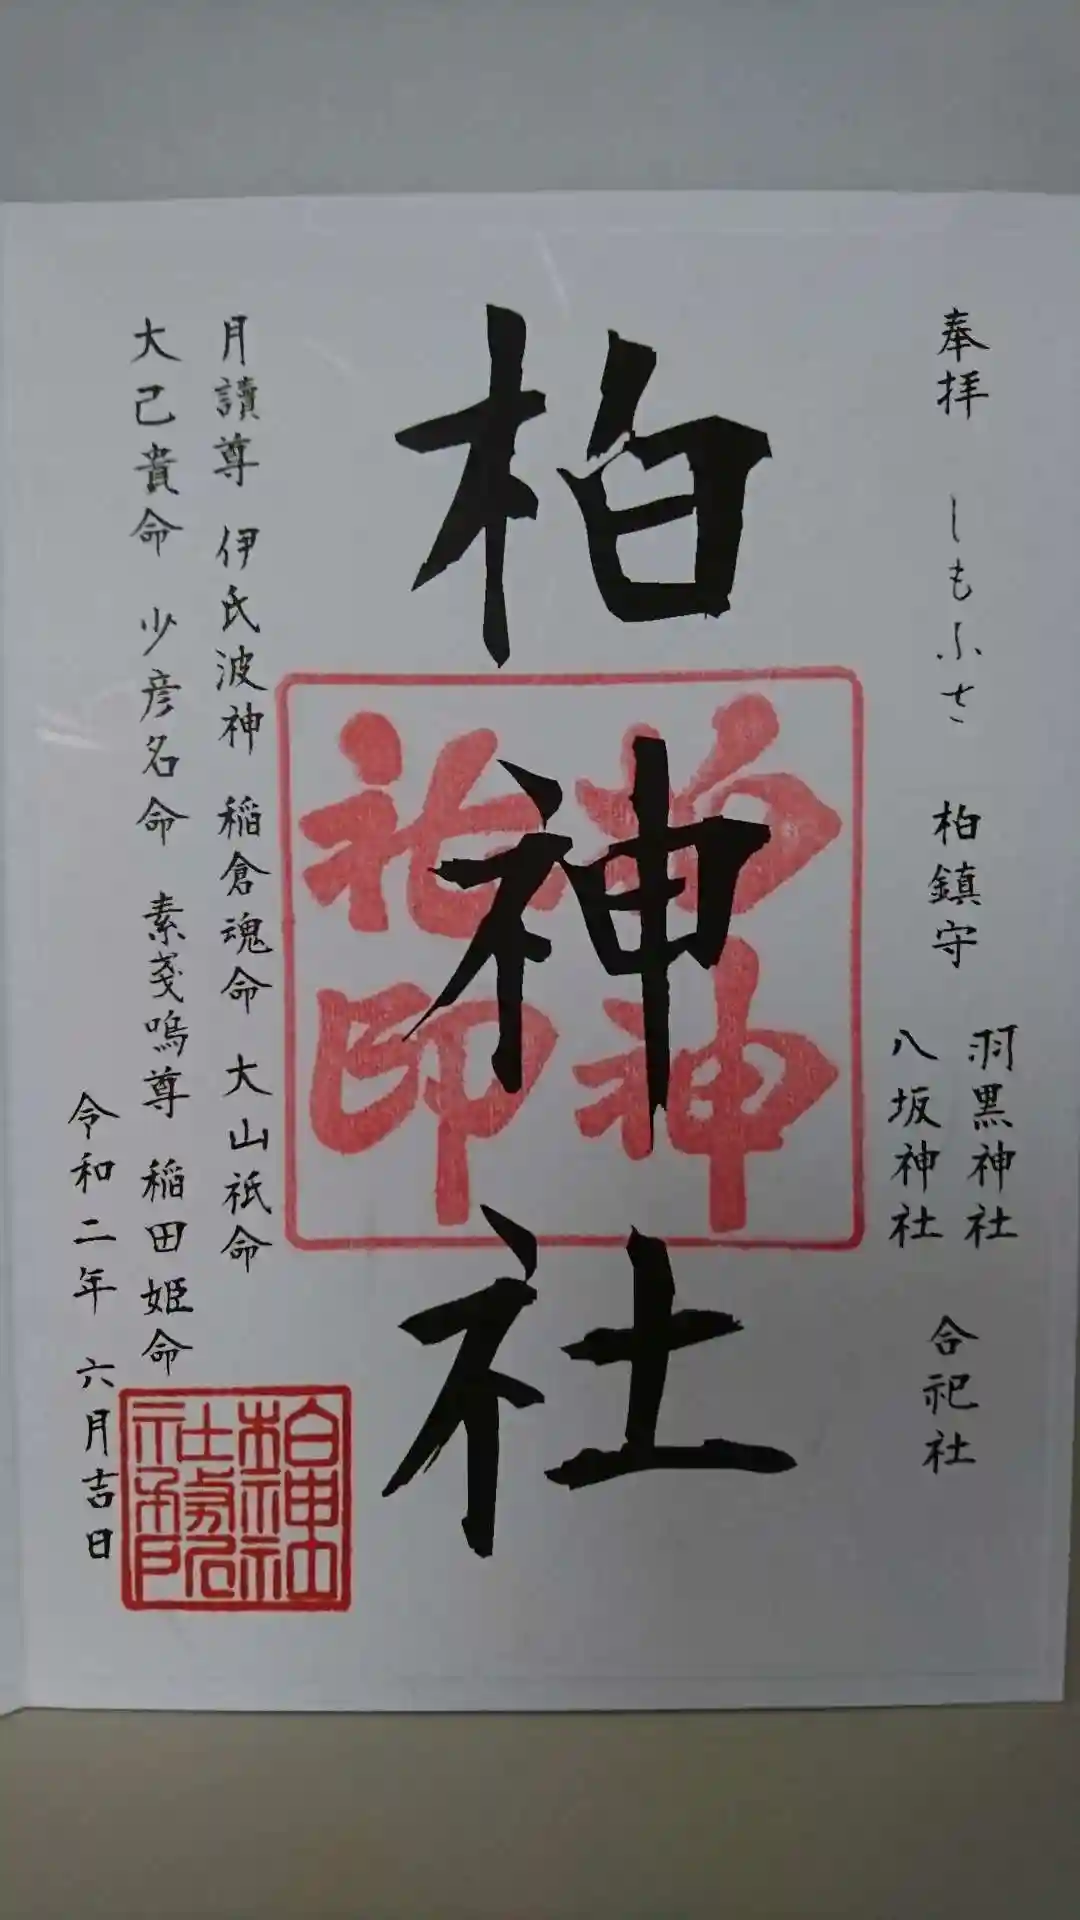 奉拝 しもふさ 柏鎮守
羽黒神社
八坂神社
合祀社
柏神社
柏神社印
月讀尊 伊氐波神 稲倉魂命 大山祇命
大己貴命 少彦名命 素戔嗚尊 稲田姫命
令和二年 六月吉日
柏神社
社務所